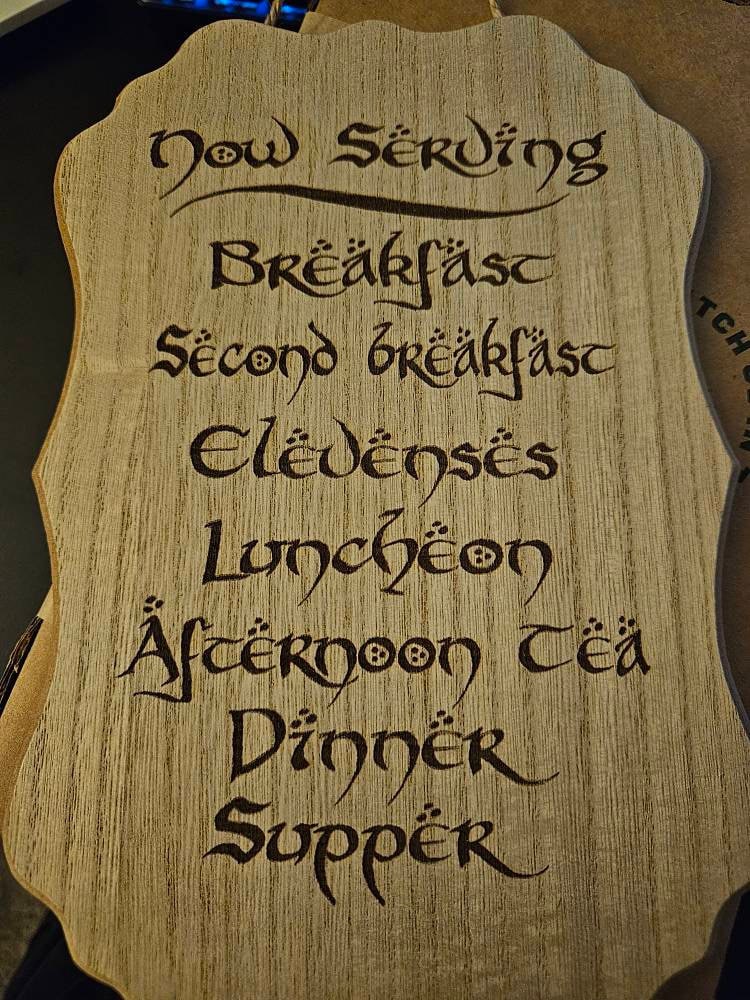 Now Serving
Breakfast
Second breakfast
Elevenses
Luncheon
Afternoon Tea
Dinner
Supper